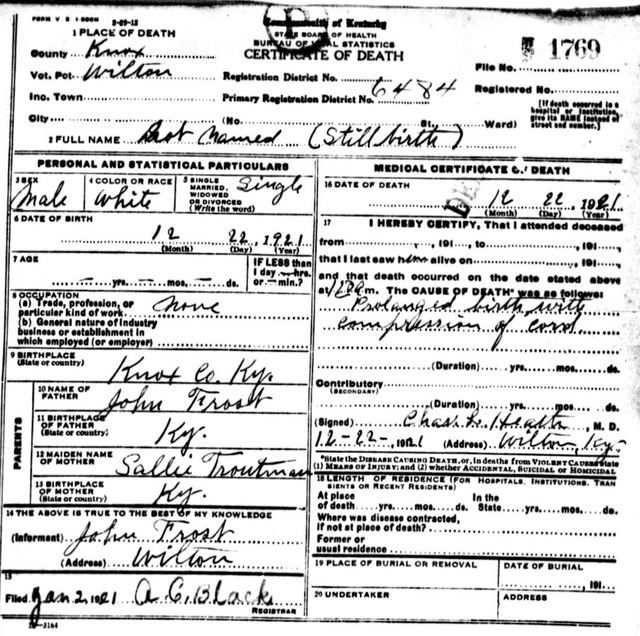 FORM V S 1-500M
3-29-12
Commonwealth of Kentucky
STATE BOARD OF HEALTH
BUREAU OF VITAL STATISTICS
CERTIFICATE OF DEATH
1 PLACE OF DEATH
County Knox
Vot. Pct. Wilton
Inc. Town
City
Registration District No.
Primary Registration District No. 6484
(No. St. Ward)
File No. 1769
Registered No.
[If death occurred in a
hospital or institution,
give its NAME instead of
street and number.]
2 FULL NAME Not Named (Still birth)
PERSONAL AND STATISTICAL PARTICULARS
3 SEX
Male
4 COLOR OR RACE
White
5 SINGLE
MARRIED,
WIDOWED
OR DIVORCED
(Write the word)
Single
6 DATE OF BIRTH
12 22, 1921
(Month) (Day) (Year)
7 AGE
— yrs. — mos. — ds.
IF LESS than
1 day — hrs.
or — min.?
8 OCCUPATION
(a) Trade, profession, or
particular kind of work
None
(b) General nature of industry
business or establishment in
which employed (or employer)
9 BIRTHPLACE
(State or country)
Knox Co. Ky.
PARENTS
10 NAME OF
FATHER
John Frost
11 BIRTHPLACE
OF FATHER
(State or country)
Ky.
12 MAIDEN NAME
OF MOTHER
Sallie Troutman
13 BIRTHPLACE
OF MOTHER
(State or country)
Ky.
14 THE ABOVE IS TRUE TO THE BEST OF MY KNOWLEDGE
(Informant) John Frost
(Address) Wilton
15
Filed Jan 2, 1921 A C. Black
REGISTRAR
3184
MEDICAL CERTIFICATE OF DEATH
16 DATE OF DEATH
12 22, 1921
(Month) (Day) (Year)
17 I HEREBY CERTIFY, That I attended deceased
from , 191 , to , 191 ,
that I last saw him alive on , 191 ,
and that death occurred on the date stated above
at m. The CAUSE OF DEATH* was as follows:
Prolanged birth with
compression of cord
(Duration) yrs. mos. ds.
Contributory
(SECONDARY)
(Duration) yrs. mos. ds.
(Signed) Chas. L. Heath, M. D.
12-22-, 1921 (Address) Wilton Ky.
*State the DISEASE CAUSING DEATH, or, in deaths from VIOLENT CAUSES state
(1) MEANS OF INJURY; and (2) whether ACCIDENTAL, SUICIDAL OR HOMICIDAL
18 LENGTH OF RESIDENCE (FOR HOSPITALS, INSTITUTIONS, TRAN
SIENTS OR RECENT RESIDENTS)
At place
of death yrs. mos. ds.
In the
State yrs. mos. ds.
Where was disease contracted,
if not at place of death?
Former or
usual residence
19 PLACE OF BURIAL OR REMOVAL
DATE OF BURIAL
, 191
20 UNDERTAKER
ADDRESS